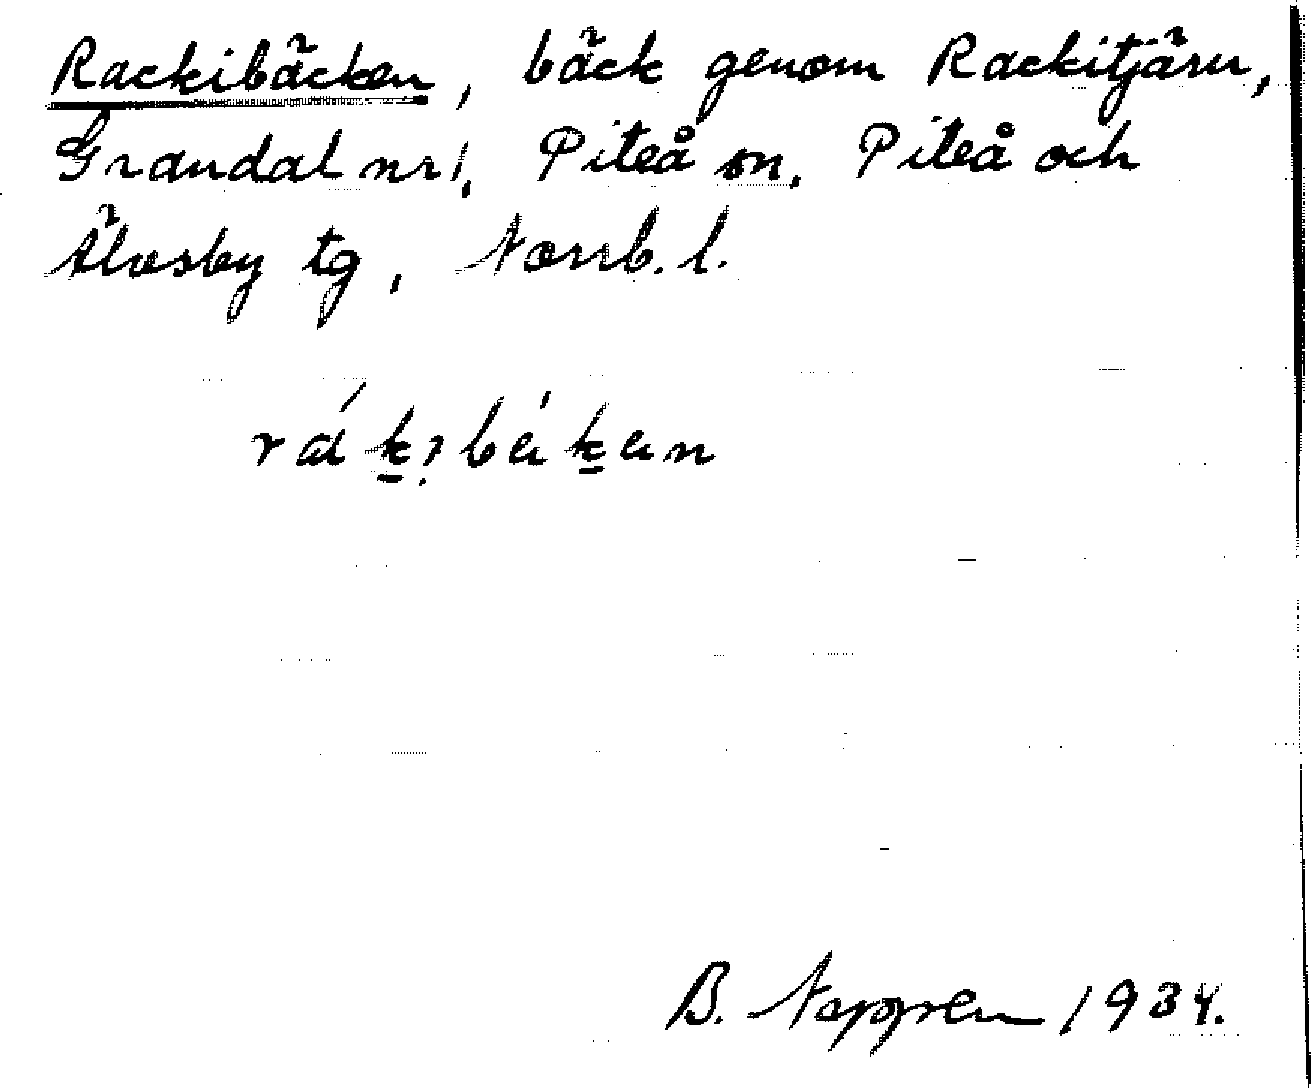 Rackibäcken, bäck genom Rackitjärn,
Grandal nr 1, Piteå sn, Piteå och
Älvsby tg, Norrb. l.
B. 1934.